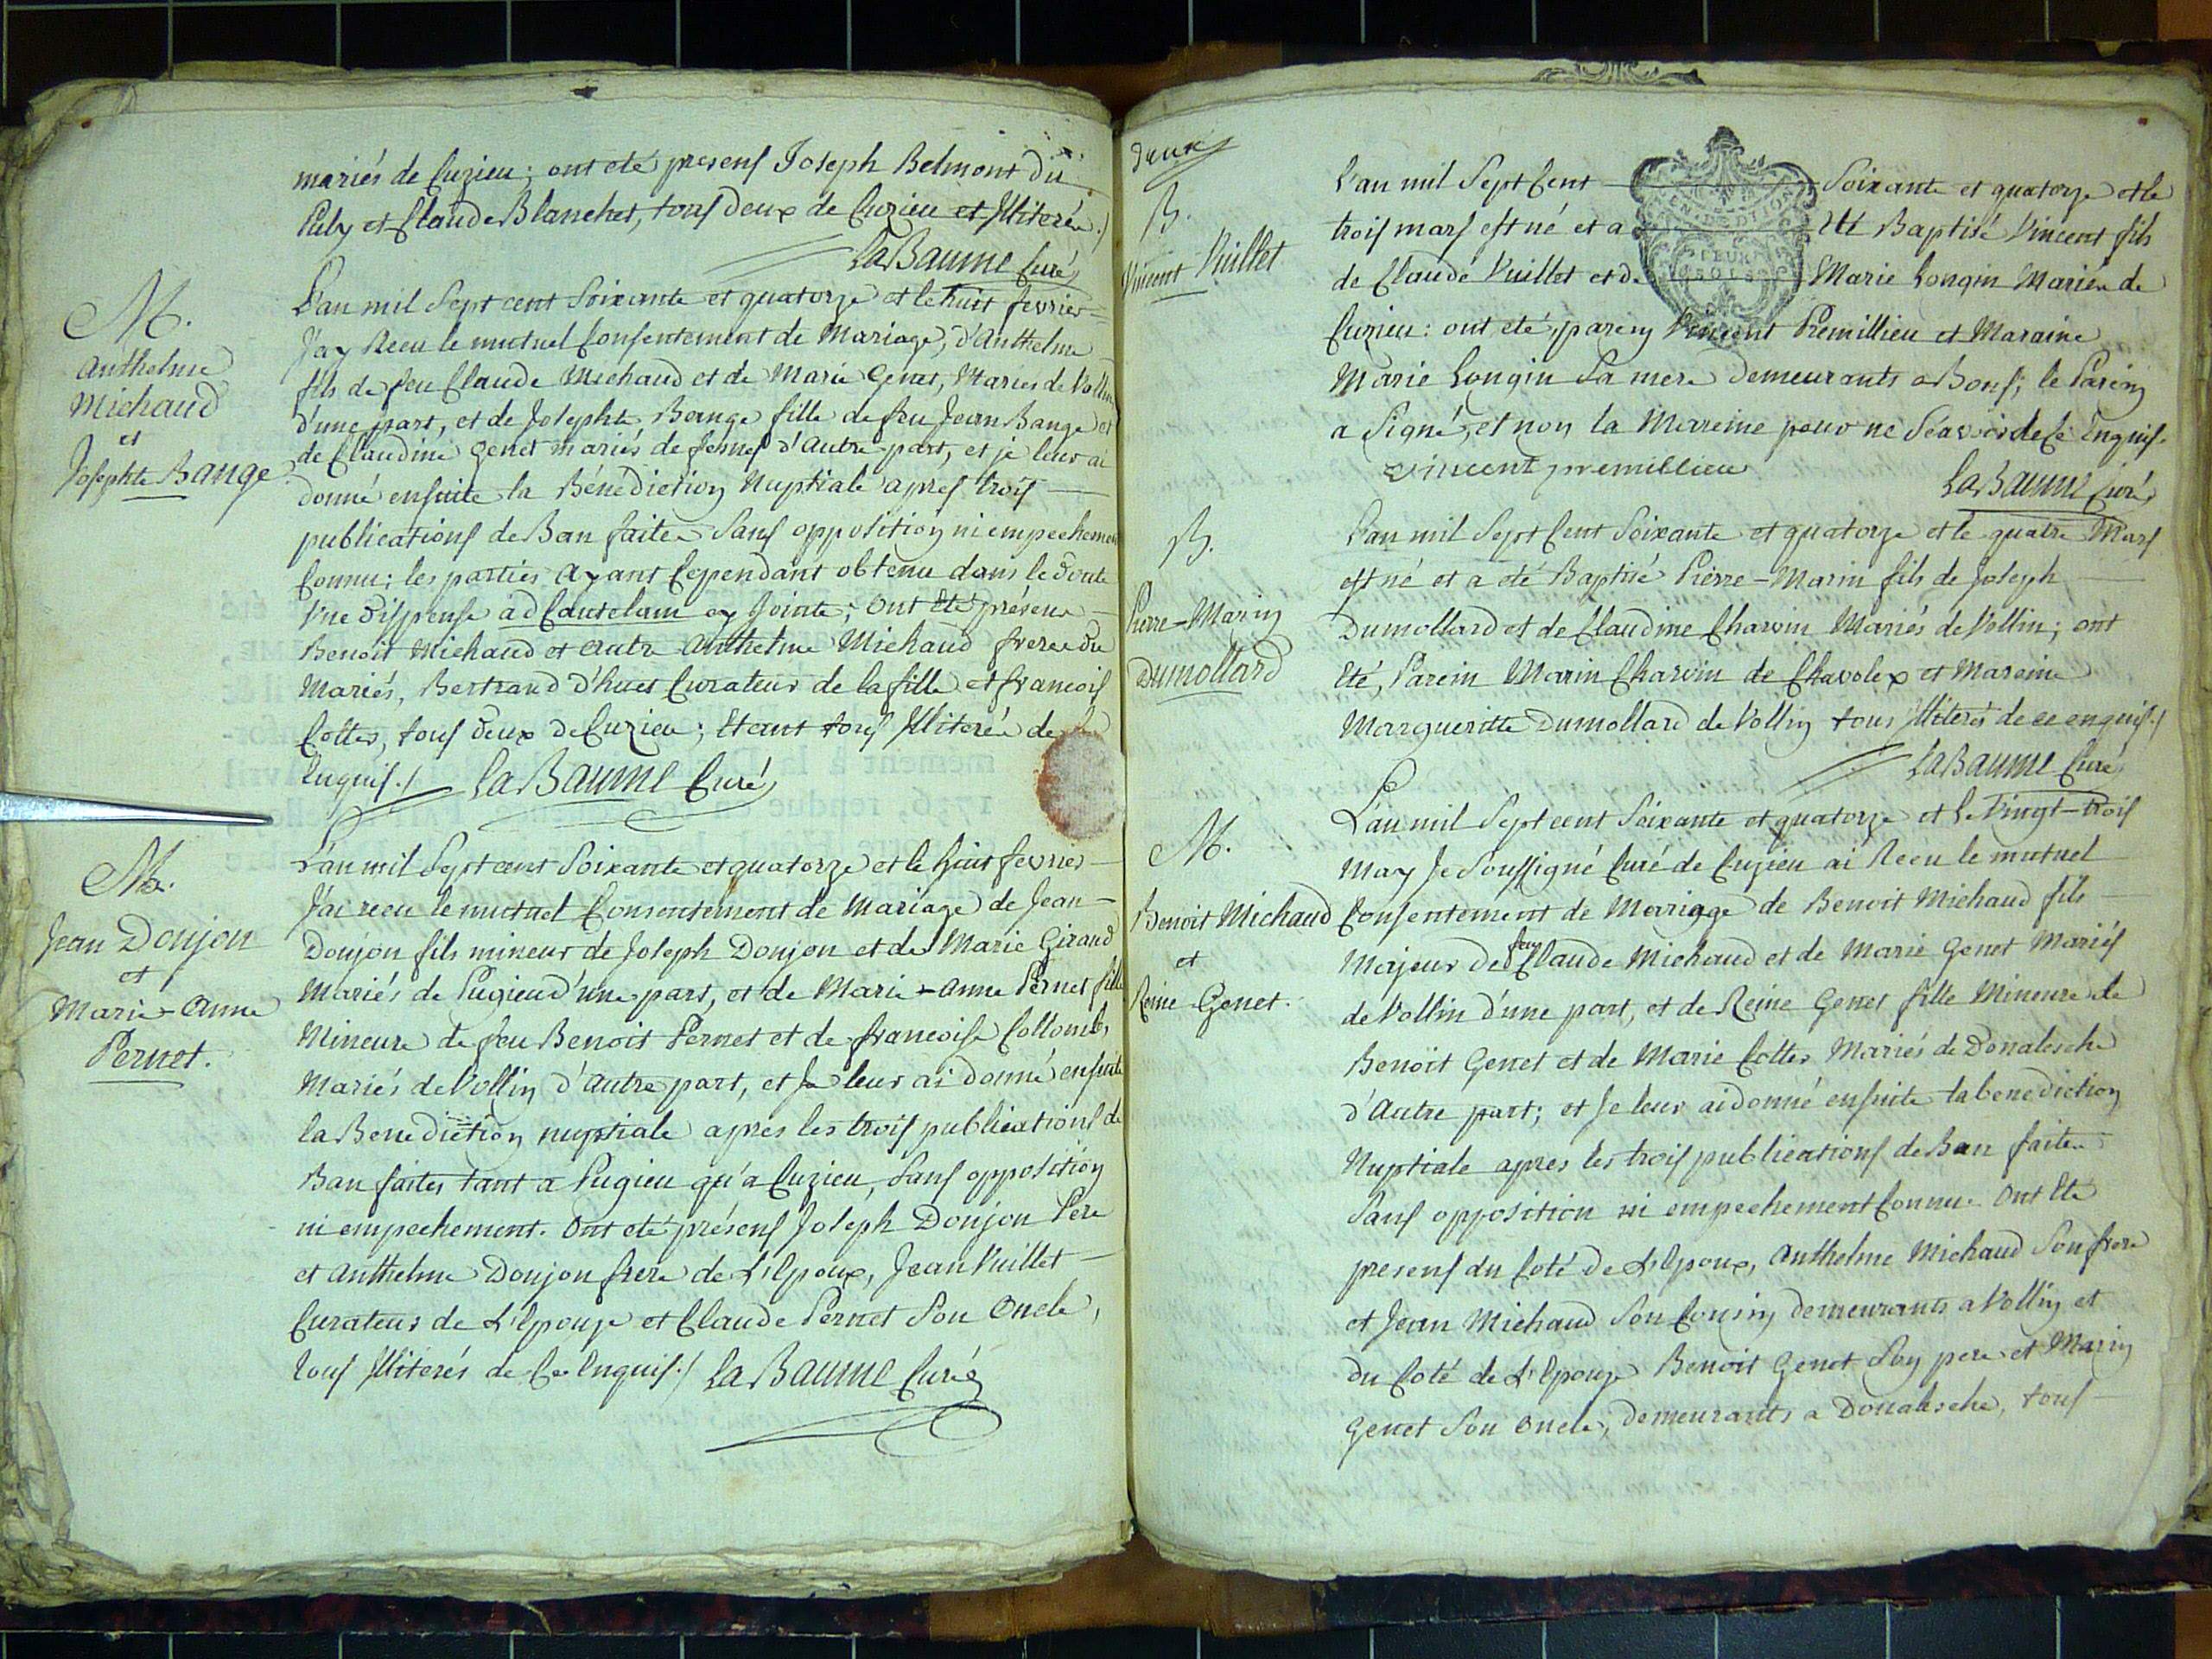 mariés de Cuzieu; ont eté presens Joseph Belmont du
Puby et Claude Blanchet, tous deux de Cuzieu et Illiterés./
La Baume Curé
M.
Anthelme
Michaud
et
Josephte Bange
L'an mil Sept cent Soixante et quatorze et le huit fevrier
J'ay Receu le mutuel Consentement de Mariage, d'Anthelme
fils de feu Claude Michaud et de Marie Genet, Mariés de Vollin
d'une part, et de Josephte Bange fille de feu Jean Bange et
de Claudine Genet mariés de d'Autre part, et je leur ai
donné ensuite la Bénédiction Nuptiale apres trois
publications de Ban faites Sans opposition ni empechement
Connu; les parties Ayant Cependant obtenu dans le doute
Une dispense ad Cautelam cy Jointe; Ont Eté présens
Benoit Michaud et autre Anthelme Michaud freres du
Mariés, Bertrand d'huet Curateur de la fille et francois
Cottes, tous deux de Cuzieu; Etant tous Illiterés de Ce
Enquis./ La Baume Curé
M.
Jean Donjon
et
Marie-Anne
Pernet.
L'an mil Sept cent Soixante et quatorze et le huit fevrier
J'ai receu le mutuel Consentement de Mariage de Jean
Donjon fils mineur de Joseph Donjon et de Marie Giraud
Mariés de Pugieu d'une part, et de Marie-Anne Pernet fille
Mineure de feu Benoit Pernet et de francoise Collomb,
Mariés de Vollin d'Autre part, et Je leur ai donné ensuite
la Benediction nuptiale apres les trois publications de
Ban faites tant a Pugieu qu'a Cuzieu, Sans opposition
ni empechement. Ont eté présens Joseph Donjon Pere
et Anthelme Donjon frere de L'Epoux, Jean Vuillet
Curateur de L'Epouse et Claude Pernet Son Oncle,
tous Illiterés de Ce Enquis./ La Baume Curé
deux
B.
Vincent Vuillet
L'an mil Sept Cent Soixante et quatorze et le
trois mars est né et a Eté Baptisé Vincent fils
de Claude Vuillet et de Marie Longin Mariés de
Cuzieu: ont eté parein Vincent Premillieu et Maraine
Marie Longin Sa mere demeurants a Bons; le Parein
a Signé, et non la Marreine pour ne Scavoir de Ce Enquis.
vincent premillieu
La Baume Curé
B.
Pierre-Marin
Dumollard
L'an mil Sept Cent Soixante et quatorze et le quatre Mars
est né et a eté Baptisé Pierre-Marin fils de Joseph
Dumollard et de Claudine Charvin Mariés de Vollin; ont
Eté, Parein Marin Charvin de Chavolex et Mareine
Margueritte Dumollard de Vollin tous Illiterés de ce enquis./
La Baume Curé
M.
Benoit Michaud
et
Reine Genet.
L'an mil Sept cent Soixante et quatorze et le Vingt-trois
May Je Soussigné Curé de Cuzieu ai Receu le mutuel
Consentement de Mariage de Benoit Michaud fils
Majeur de feu Claude Michaud et de Marie Genet Mariés
de Vollin d'une part, et de Reine Genet fille Mineure de
Benoit Genet et de Marie Cottes Mariés de Donalesche
d'Autre part; et Je leur ai donné ensuite la benediction
Nuptiale apres les trois publications de Ban faites
Sans opposition ni empechement Connu. Ont Eté
presens du Coté de L'Epoux, Anthelme Michaud Son frere
et Jean Michaud Son Cousin demeurants a Vollin et
du Coté de L'Epouse Benoit Genet Son pere et Marin
Genet Son Oncle, demeurants a Donalesche, tous